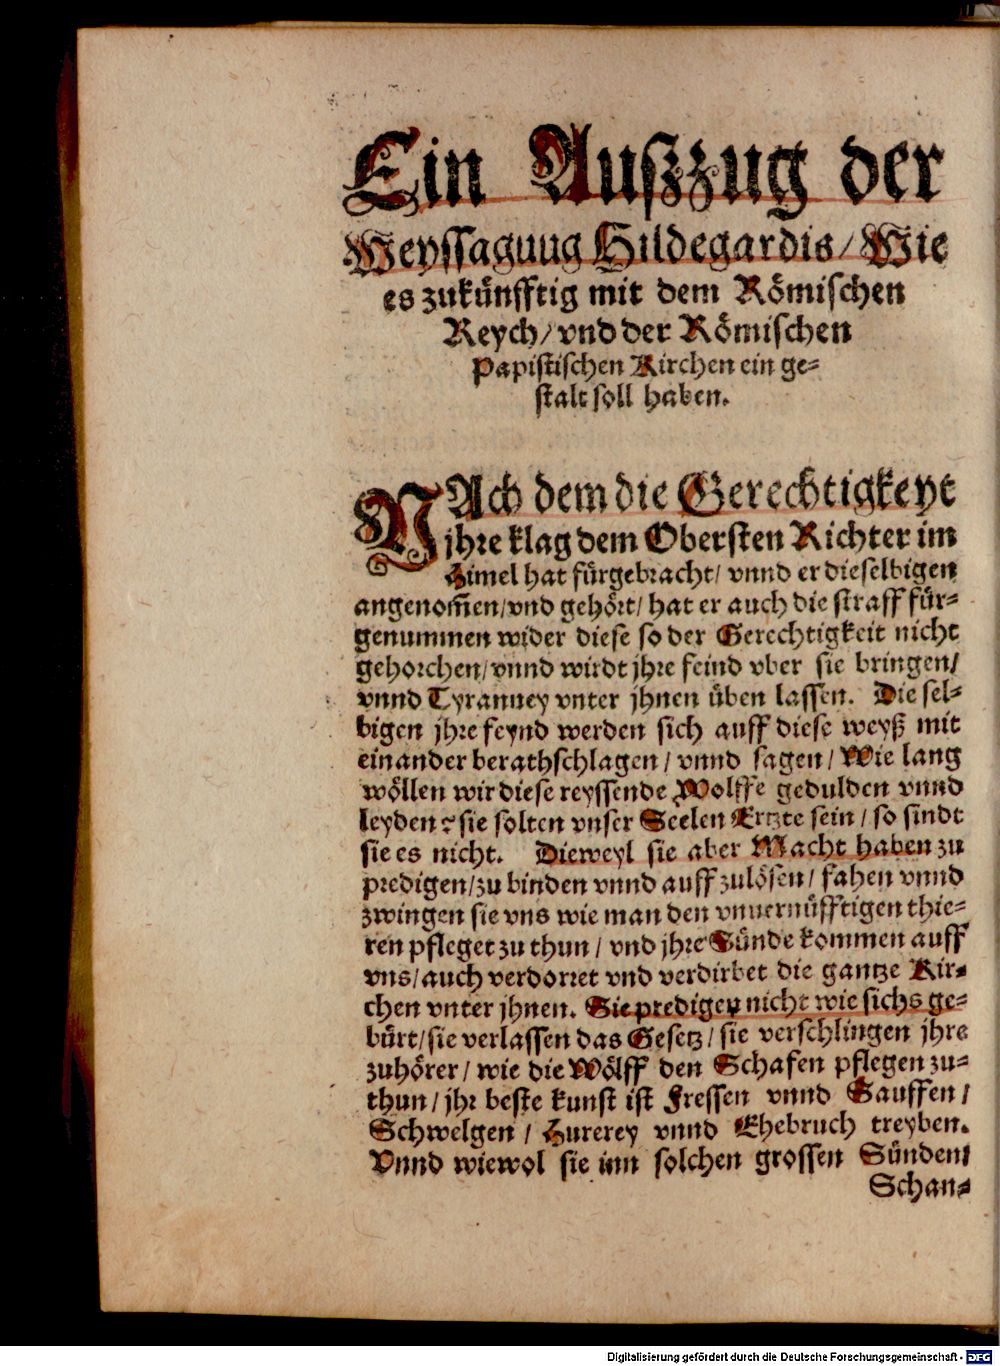 Ein Auszzug der
Weyssaguug Hildegardis/ Wie
es zukünfftig mit dem Römischen
Reych/ vnd der Römischen
Papistischen Kirchen ein ge-
stalt soll haben.
NAch dem die Gerechtigkeyt
jhre klag dem Obersten Richter im
Himel hat fürgebracht/ vnnd er dieselbigen
angenom̃en/ vnd gehört/ hat er auch die straff für-
genummen wider diese so der Gerechtigkeit nicht
gehorchen/ vnnd wirdt jhre feind vber sie bringen/
vnnd Tyranney vnter jhnen üben lassen. Die sel-
bigen jhre feynd werden sich auff diese weyß mit
einander berathschlagen/ vnnd sagen/ Wie lang
wöllen wir diese reyssende Wolffe gedulden vnnd
leyden? sie solten vnser Seelen Ertzte sein/ so sindt
sie es nicht. Dieweyl sie aber Macht haben zu
predigen/ zu binden vnnd auff zulösen/ fahen vnnd
zwingen sie vns wie man den vnuernüfftigen thie-
ren pfleget zu thun/ vnd jhre Sünde kommen auff
vns/ auch verdorret vnd verdirbet die gantze Kir-
chen vnter jhnen. Sie predigen nicht wie sichs ge-
bürt/ sie verlassen das Gesetz/ sie verschlingen jhre
zuhörer/ wie die Wölff den Schafen pflegen zu-
thun/ jhr beste kunst ist Fressen vnnd Sauffen/
Schwelgen/ Hurerey vnnd Ehebruch treyben.
Vnnd wiewol sie inn solchen grossen Sünden/
Schan-
Digitalisierung gefördert durch die Deutsche Forschungsgemeinschaft - DFG